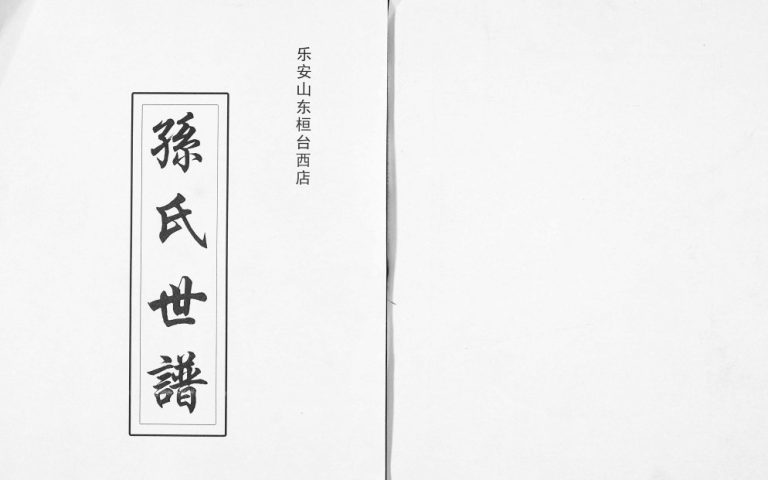 乐安山东桓台西店
孫氏世譜